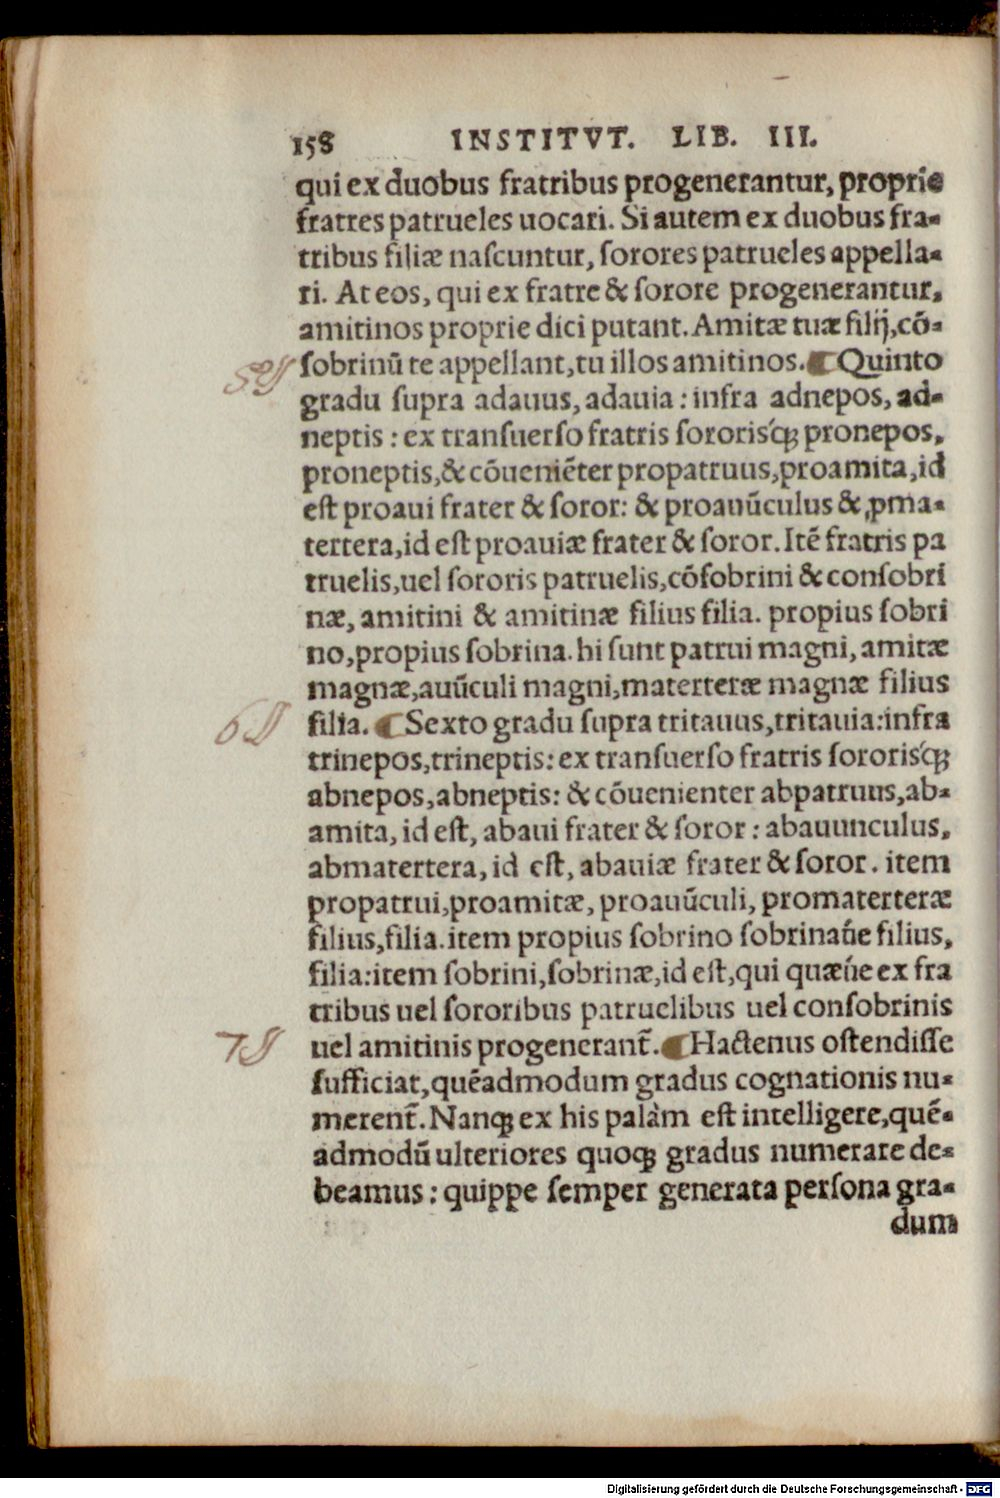 158 INSTITVT. LIB. III.
qui ex duobus fratribus progenerantur, proprie
fratres patrueles uocari. Si autem ex duobus fra-
tribus filiæ naſcuntur, ſorores patrueles appella-
ri. At eos, qui ex fratre & ſorore progenerantur,
amitinos proprie dici putant. Amitæ tuæ filij, cō-
5 § ſobrinū te appellant, tu illos amitinos. ¶ Quinto
gradu ſupra adauus, adauia: infra adnepos, ad-
neptis: ex tranſuerſo fratris ſororisq́ꝫ pronepos,
proneptis, & cōueniēter propatruus, proamita, id
eſt proaui frater & ſoror: & proauūculus &, ꝓma-
tertera, id eſt proauiæ frater & ſoror. Itē fratris pa
truelis, uel ſororis patruelis, cōſobrini & conſobri
næ, amitini & amitinæ filius filia. propius ſobri
no, propius ſobrina. hi ſunt patrui magni, amitæ
magnæ, auūculi magni, materteræ magnæ filius
6 § filia. ¶ Sexto gradu ſupra tritauus, tritauia: infra
trinepos, trineptis: ex tranſuerſo fratris ſororisq́ꝫ
abnepos, abneptis: & cōuenienter abpatruus, ab-
amita, id eſt, abaui frater & ſoror: abauunculus,
abmatertera, id eſt, abauiæ frater & ſoror. item
propatrui, proamitæ, proauūculi, promaterteræ
filius, filia. item propius ſobrino ſobrinaúe filius,
filia: item ſobrini, ſobrinæ, id eſt, qui quæúe ex fra
tribus uel ſororibus patruelibus uel conſobrinis
7 § uel amitinis progenerant̃. ¶ Hactenus oſtendiſſe
ſufficiat, quēadmodum gradus cognationis nu-
merent̃. Nanqꝫ ex his palàm eſt intelligere, quē-
admodū ulteriores quoqꝫ gradus numerare de-
beamus: quippe ſemper generata perſona gra-
dum
Digitalisierung gefördert durch die Deutsche Forschungsgemeinschaft - DFG